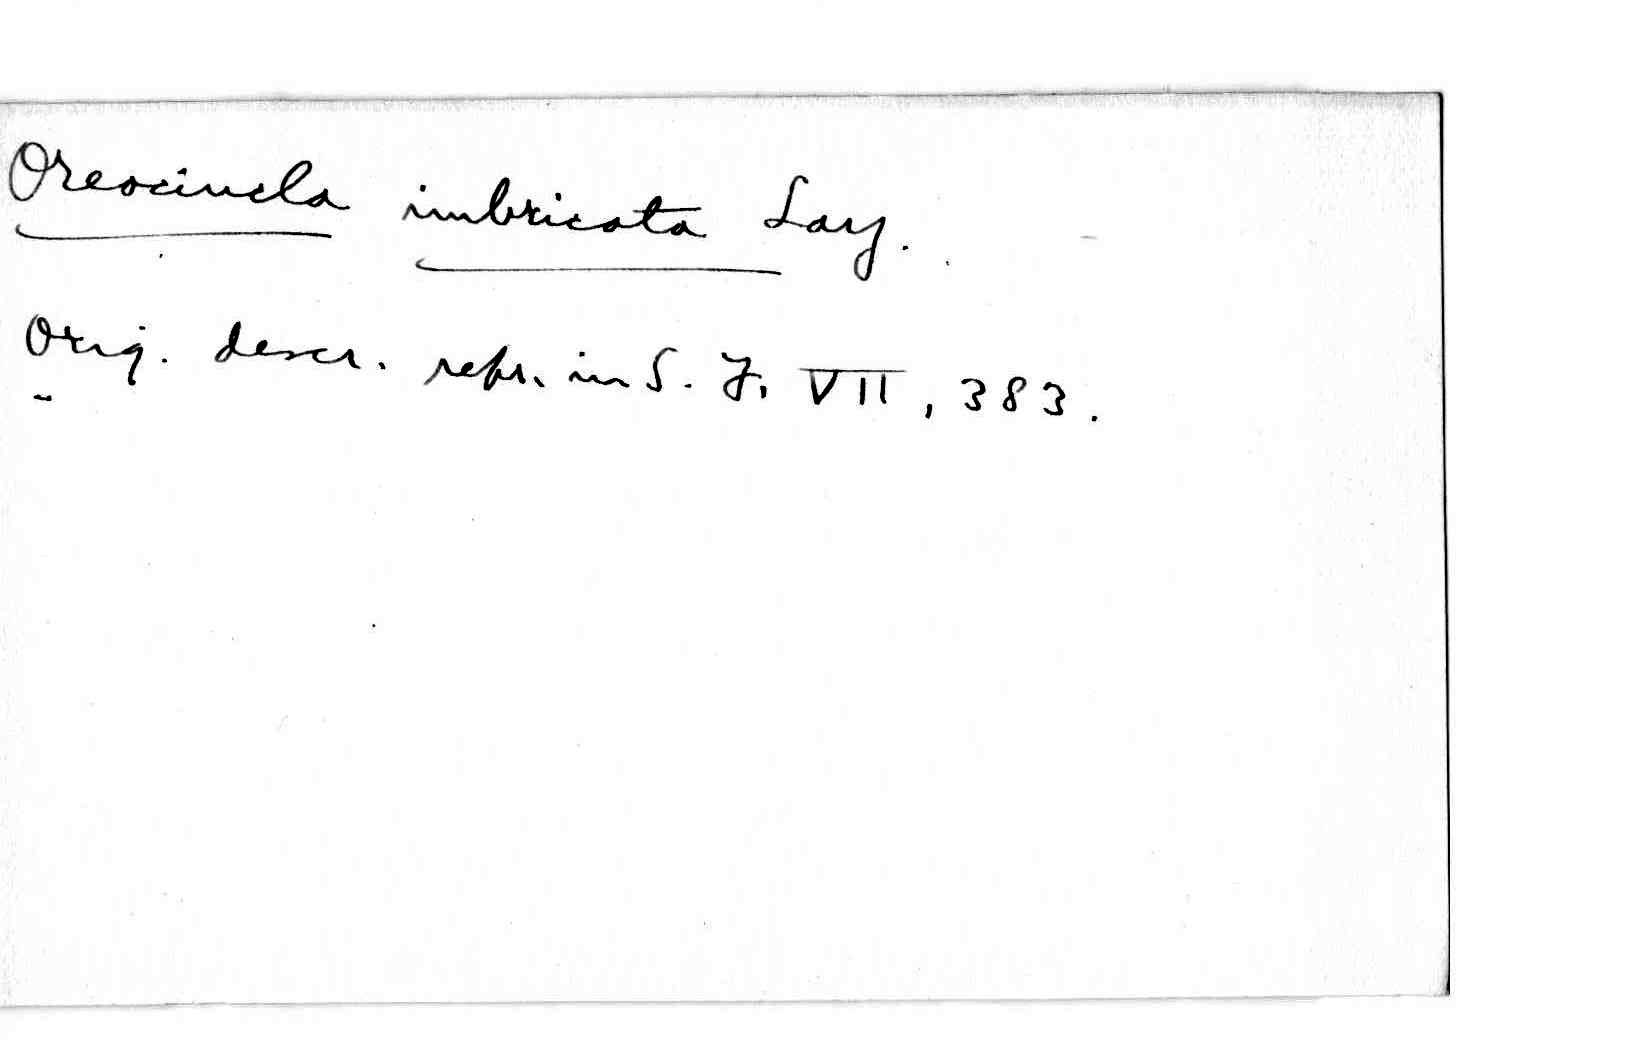 Oreocincla imbricata Lay.
Orig. descr. repr. in S. F. VII, 383.